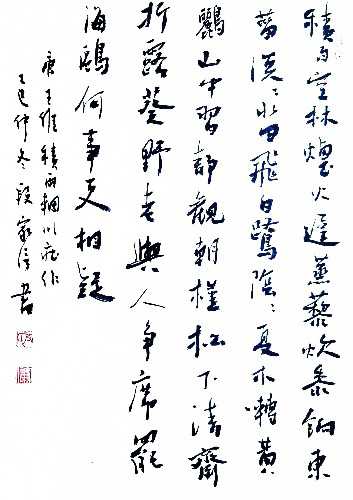 積雨空林煙火遲蒸藜炊黍餉東
菑漠〻水田飛白鷺陰〻夏木囀黃
鸝山中習靜觀朝槿松下清齋
折露葵野老與人爭席罷
海鷗何事更相疑
唐王維積雨輞川莊作
乙巳仲冬段家書